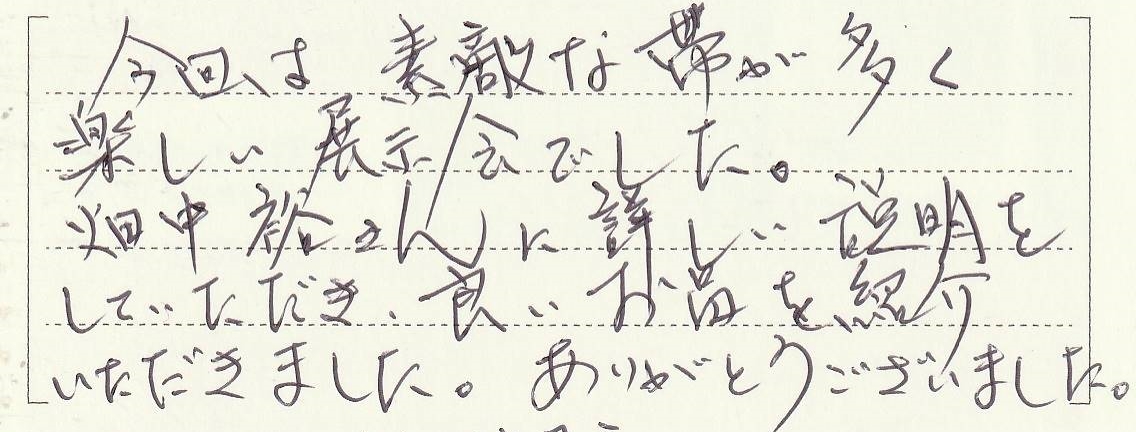 今回は素敵な帯が多く
楽しい展示会でした。
畑中裕さんに詳しい説明を
していただき、良いお品を紹介
いただきました。ありがとうございました。